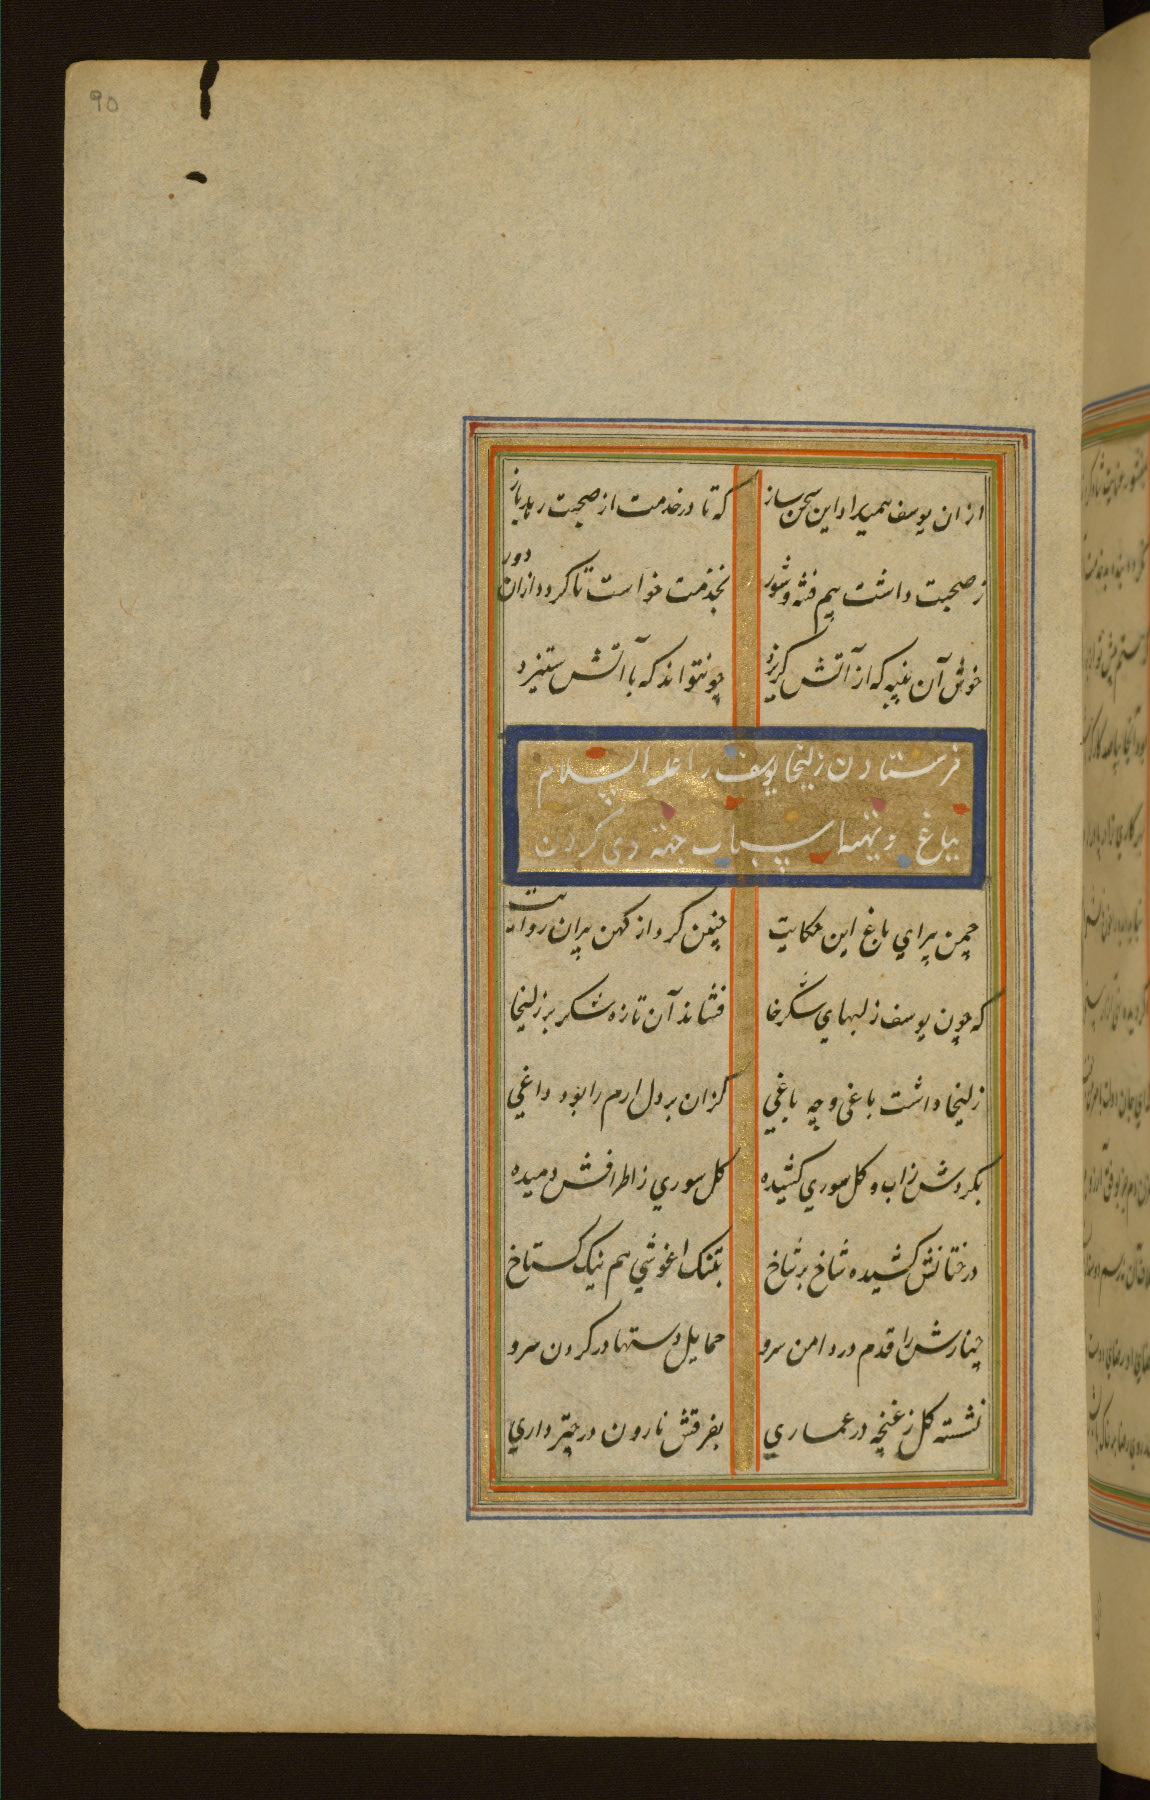 90
ازان یوسف همیداد این سخن ساز که تا در خدمت از صحبت رهد باز
ز صحبت داشت بیم فتنه و شور بخدمت خواست تا گردد ازان دور
خوش آن پنبه که از آتش گریزد چو نتواند که با آتش ستیزد
فرستادن زلیخا یوسف را علیه السلام
بباغ و تهیه اسباب جهته وی کردن
چمن پیرای باغ این حکایت چنین کرد از کهن پیران روایت
که چون یوسف ز لبهای شکرخا فشاند آن تازه شکر بر زلیخا
زلیخا داشت باغی و چه باغی کزان بر دل ارم را بود داغی
بگردش زاب و گل سوری کشیده گل سوری ز اطرافش دمیده
درختانش کشیده شاخ بر شاخ بتنک اغوشی هم نیک گستاخ
چنارش را قدم در دامن سرو حمایل دستها در گردن سرو
نشسته گل ز غنچه در عماری بفرقش نارون در چتر داری